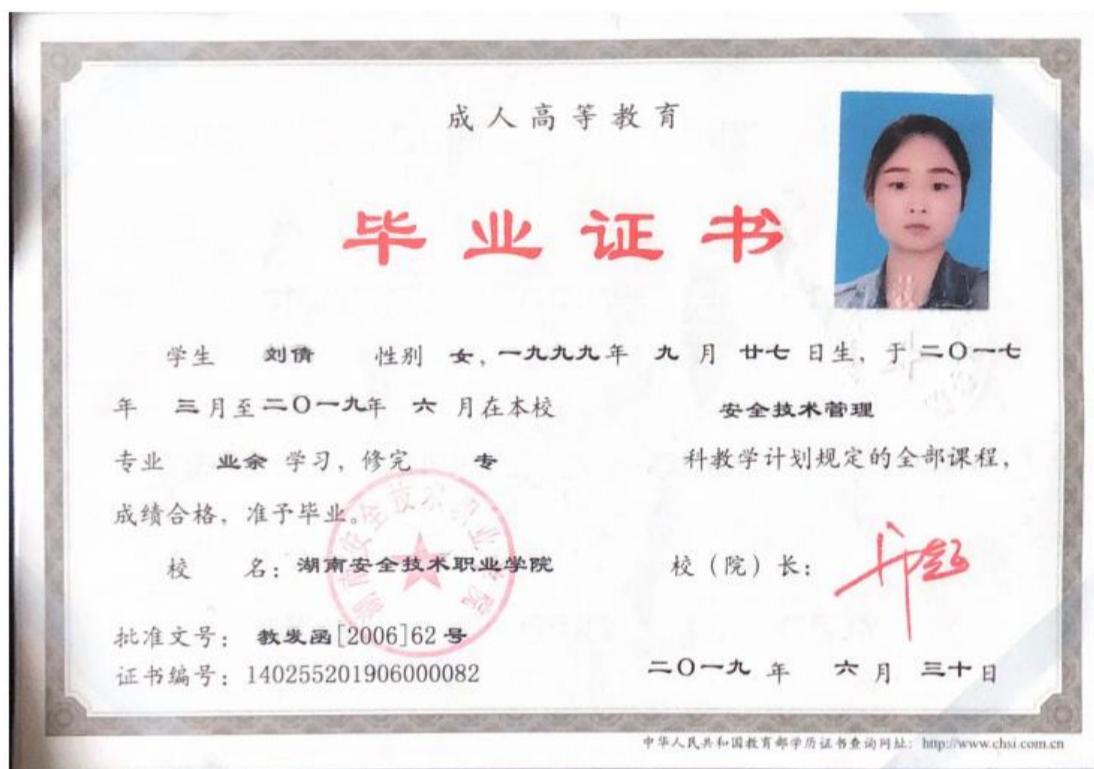 成人高等教育
毕业证书
学生 刘倩 性别 女，一九九九年 九 月 廿七 日生，于 二〇一七
年 三 月至 二〇一九年 六 月在本校 安全技术管理
专业 业余 学习，修完 专 科教学计划规定的全部课程，
成绩合格，准予毕业。
校 名：湖南安全技术职业学院 校（院）长：
批准文号：教发函[2006]62 号
证书编号：140255201906000082 二〇一九 年 六 月 三十 日
湖南安全技术职业学院
中华人民共和国教育部学历证书查询网址：http://www.chsi.com.cn